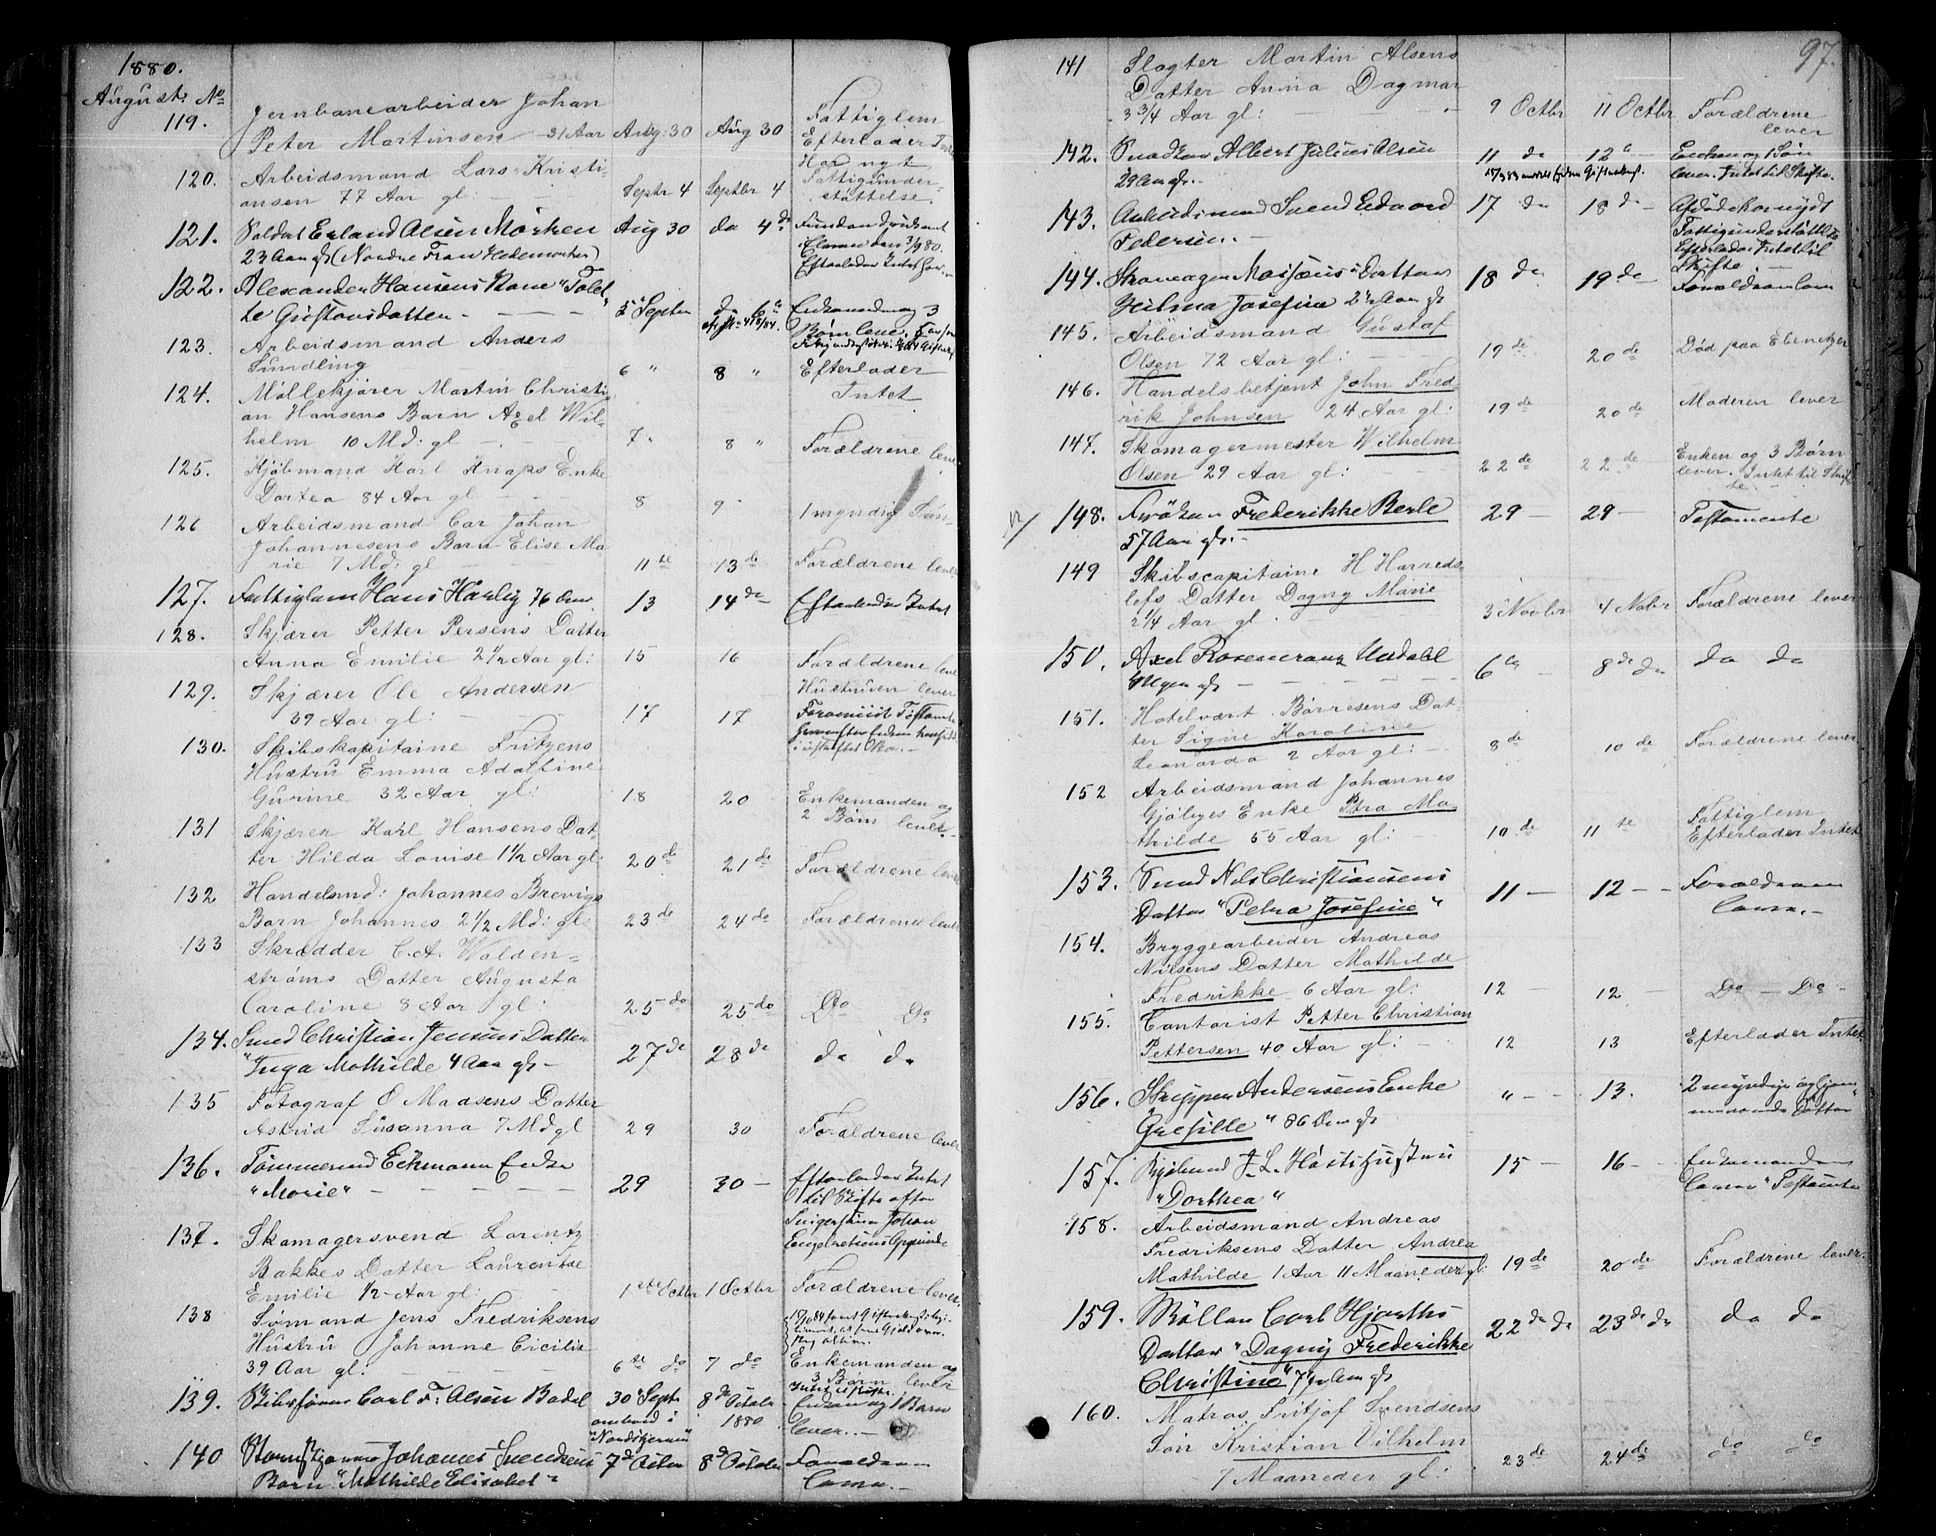 1880.
August No
119. Jernbanearbeider Johan
Peter Martinsen 31 Aar Aug: 30 Aug 30 Fattiglem Efterlader Intet
120. Arbeidsmand Lars Kristi-
ansen 77 Aar gl Septr 4 Septbr 4 Har nydt Fattigunder-
støttelse.
121. Soldat Erland Olsen Morken Aug 30 do 4de
23 Aar gl (Nordre Hedemarken) Efterlader Intet
122. Alexander Hansens Kone "
te Gustavsdatter 5 Septbr do 6 Enkemand og 3
Børn lever.
123. Arbeidsmand Anders
Sundling 6 " 8 " Efterlader
Intet
124. Møllekjører Martin Christi-
an Hansens Barn Axel Wil-
helm 10 Md: gl 7 " 8 " Forældrene lever
125. Kjøbmand Karl Knaps Enke
Dortea 84 Aar gl 8 9 1 myndig Søn
126 Arbeidsmand Car Johan
Johannesens Barn Elise Ma-
rie 7 Md: gl 11te 13de Forældrene lever
127. Fattiglem Hans Harlig 76 Aar 13 14de Efterlader Intet
128. Skjærer Petter Persens Datter
Anna Emilie 2½ Aar gl: 15 16 Forældrene lever
129. Skjærer Ole Andersen
39 Aar gl: 17 17 Hustruen lever
Testamente
130. Skibskapitaine Fritzens
Hustru Emma Adolfine
Gurine 32 Aar gl: 18 20 Enkemanden og
2 Børn lever.
131 Skjærer Karl Hansens Dat-
ter Hilda Lovise 1½ Aar gl: 20de 21de Forældrene lever
132 Handelsmd: Johannes Brevigs
Barn Johannes 2½ Md: gl: 23de 24de Forældrene lever
133 Skrædder C. A. Walden-
strøms Datter Augusta
Caroline 8 Aar gl: 25do 25do Do Do
134. Smed Christian Jensens Datter
"Inga Mathilde 4 Aar gl - 27de 28de do do
135 Fotograf O Madsens Datter
Astrid Susanna 7 Md gl 29 30 Forældrene lever
136. Tømmermd Eckmann Enke
"Marie" 29 30 - Efterlader Intet
til Skifte efter
Johan
137. Skomagersvend Lorentz
Bakkes Datter Laurentse
Emilie ½ Aar gl: 1ste Octbr 1 Octbr Forældrene lever.
138 Sømand Jens Fredriksens
Hustru Johanne Cicilie
39 Aar gl: 6te do 7 do Enkemanden og
3 Børn lever
Intet til Skifte.
139. Skibsfører Carl F. Olsen Bodel 30 Septr 8de Octobr Enken og 1 Barn
ombord i 1880 lever.-
"Nordstjernen"
140 Johannes Svendsens 7de Octbr 8de Octobr Forældrene
Barn "Mathilde Elisabet" lever.-
97.
141 Slagter Martin Olsens
Datter Anna Dagmar
3 3/4 Aar gl: 9 Octbr 11 Octbr Forældrene
lever
142. Snedker Albert Julius Olsen 11 do 12 Enken og 1 Søn
29 Aar gl.- lever. Intet til Skifte.
143. Arbeidsmand Svend Edvard 17 do 18de Afdøde har nydt
Pedersen.- Fattigunderstøttelse
Efterlader Intet til
Skifte.
144. Skomager Datter 18 do 19de Forældrene lever
Hilma Josefine 2½ Aar gl
145. Arbeidsmand Gustaf
Olsen 72 Aar gl: 19de 20de Død paa Ebenetzer
146. Handelsbetjent John Fred-
rik Johnsen 24 Aar gl: 19de 20de Moderen lever
147. Skomagermester Wilhelm
Olsen 29 Aar gl: 22de 22de Enken og 3 Børn
lever. Intet til Skif-
te
148. Frøken Frederikke Berle 29 - 29 - Testamente
57 Aar gl.-
149 Skibscapitaine H Harreds-
lefs Datter Dagny Marie
2¼ Aar gl. 3 Novbr 4 Nobr Forældrene lever
150. Axel Rosencranz Undall 6 8de do do do
Uger gl
151. Hotelvært Børresens Dat-
ter Signe Karoline
Leonarda 2 Aar gl: 8de 10de Forældrene lever
152 Arbeidsmand Johannes
Gjølyes Enke Petra Ma-
thilde 55 Aar gl: 10de 11te Fattiglem
Efterlader Intet
153. Smed Nils Christiansens
Datter "Petra Josefine" 11 - 12 - - Forældrene
lever.-
154. Bryggearbeider Andreas
Nilsens Datter Mathilde
Fredrikke 6 Aar gl: 12 - 12 - Do - Do -
155. Contorist Petter Christian
Pettersen 40 Aar gl: 12 13 Efterlader Intet
156. Skipper Andersens Enke " - - 13. 2 myndige og hjem-
Gresille " 86 Aar gl Datter
157. Kjøbmd J. L. Høsts Hustru 15 - 16 - Enkemanden
"Dorthea" lever " Testamte
158. Arbeidsmand Andreas
Fredriksens Datter Andrea
Mathilde 1 Aar 11 Maaneder gl: 19de 20de Forældrene lever.
159. Møller Carl Hjorths 22de do 23de do do do
Datter "Dagny Frederikke
Christine" 7 Aar gl
160. Matros Fritjof Svendsens
Søn Kristian Vilhelm
7 Maaneder gl: 23de 24de do do